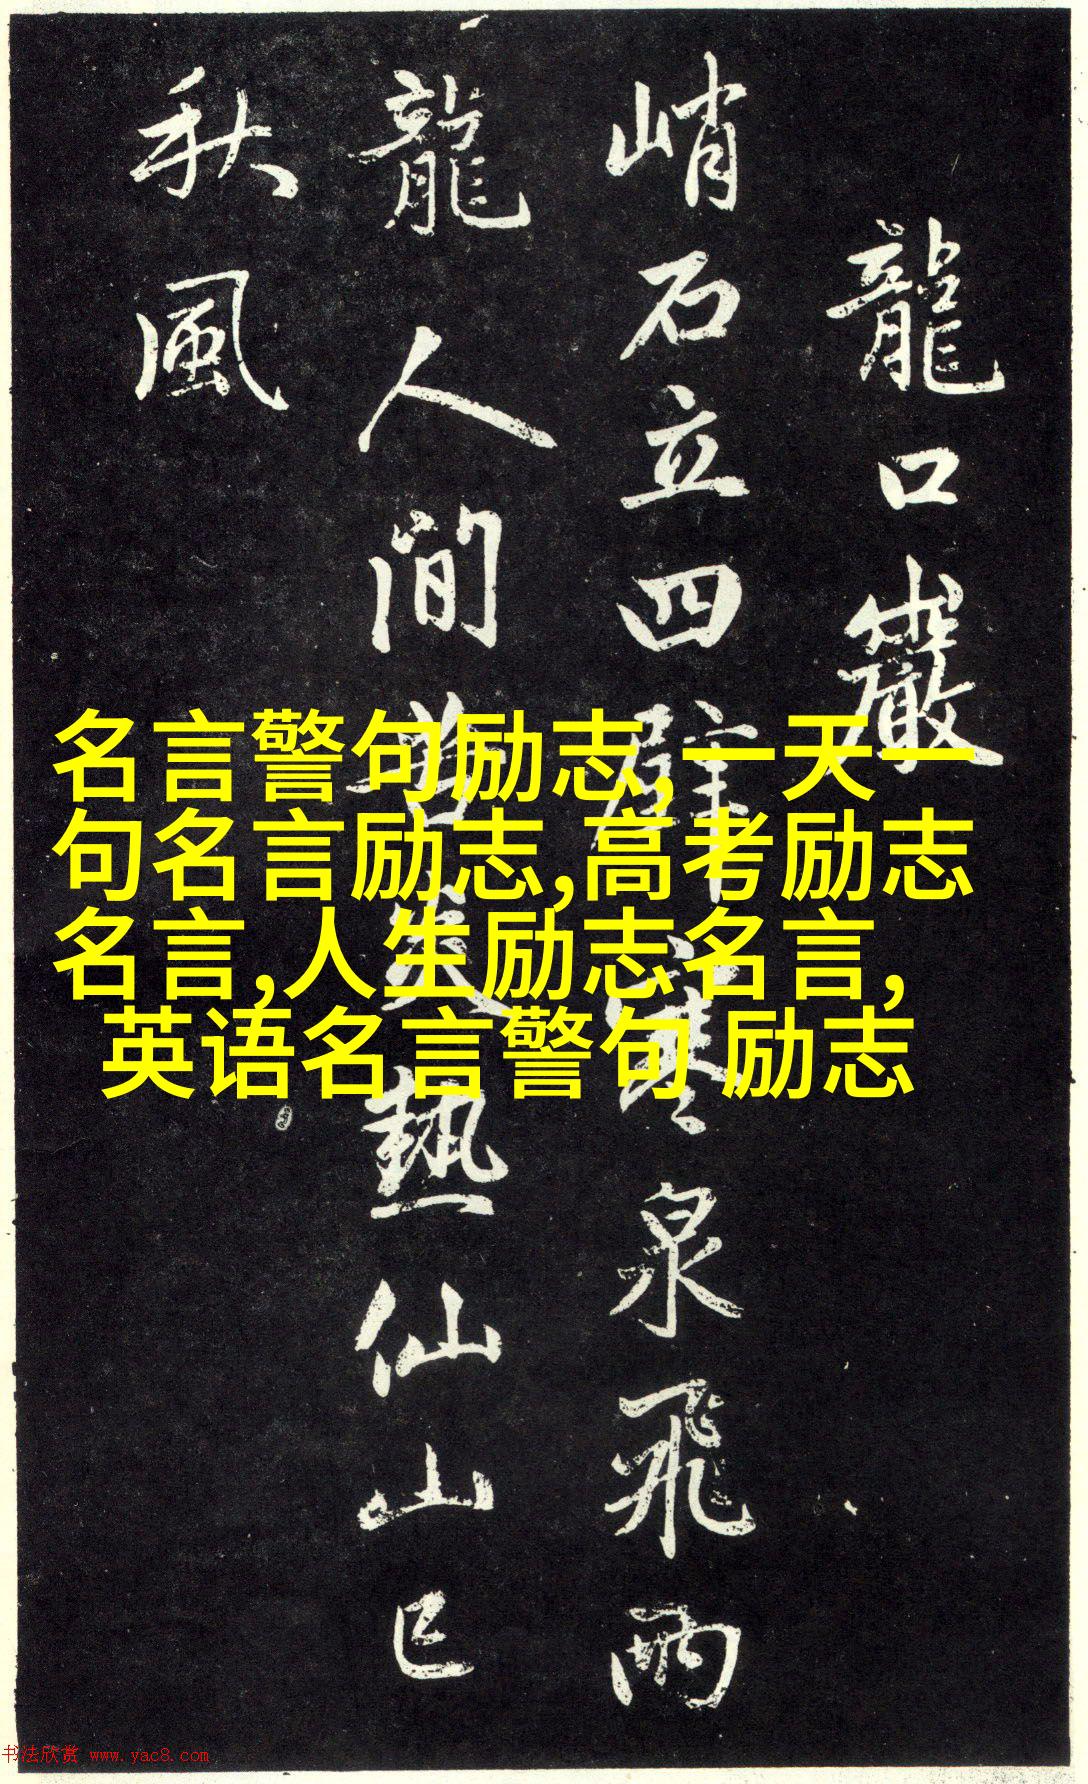 龍口巖
峭石立四壁寒泉飛兩
龍人間苦炎熱仙山已
秋風
名言警句励志,一天一
句名言励志,高考励志
名言,人生励志名言,
英语名言警句 励志
书法欣赏 www.yac8.com